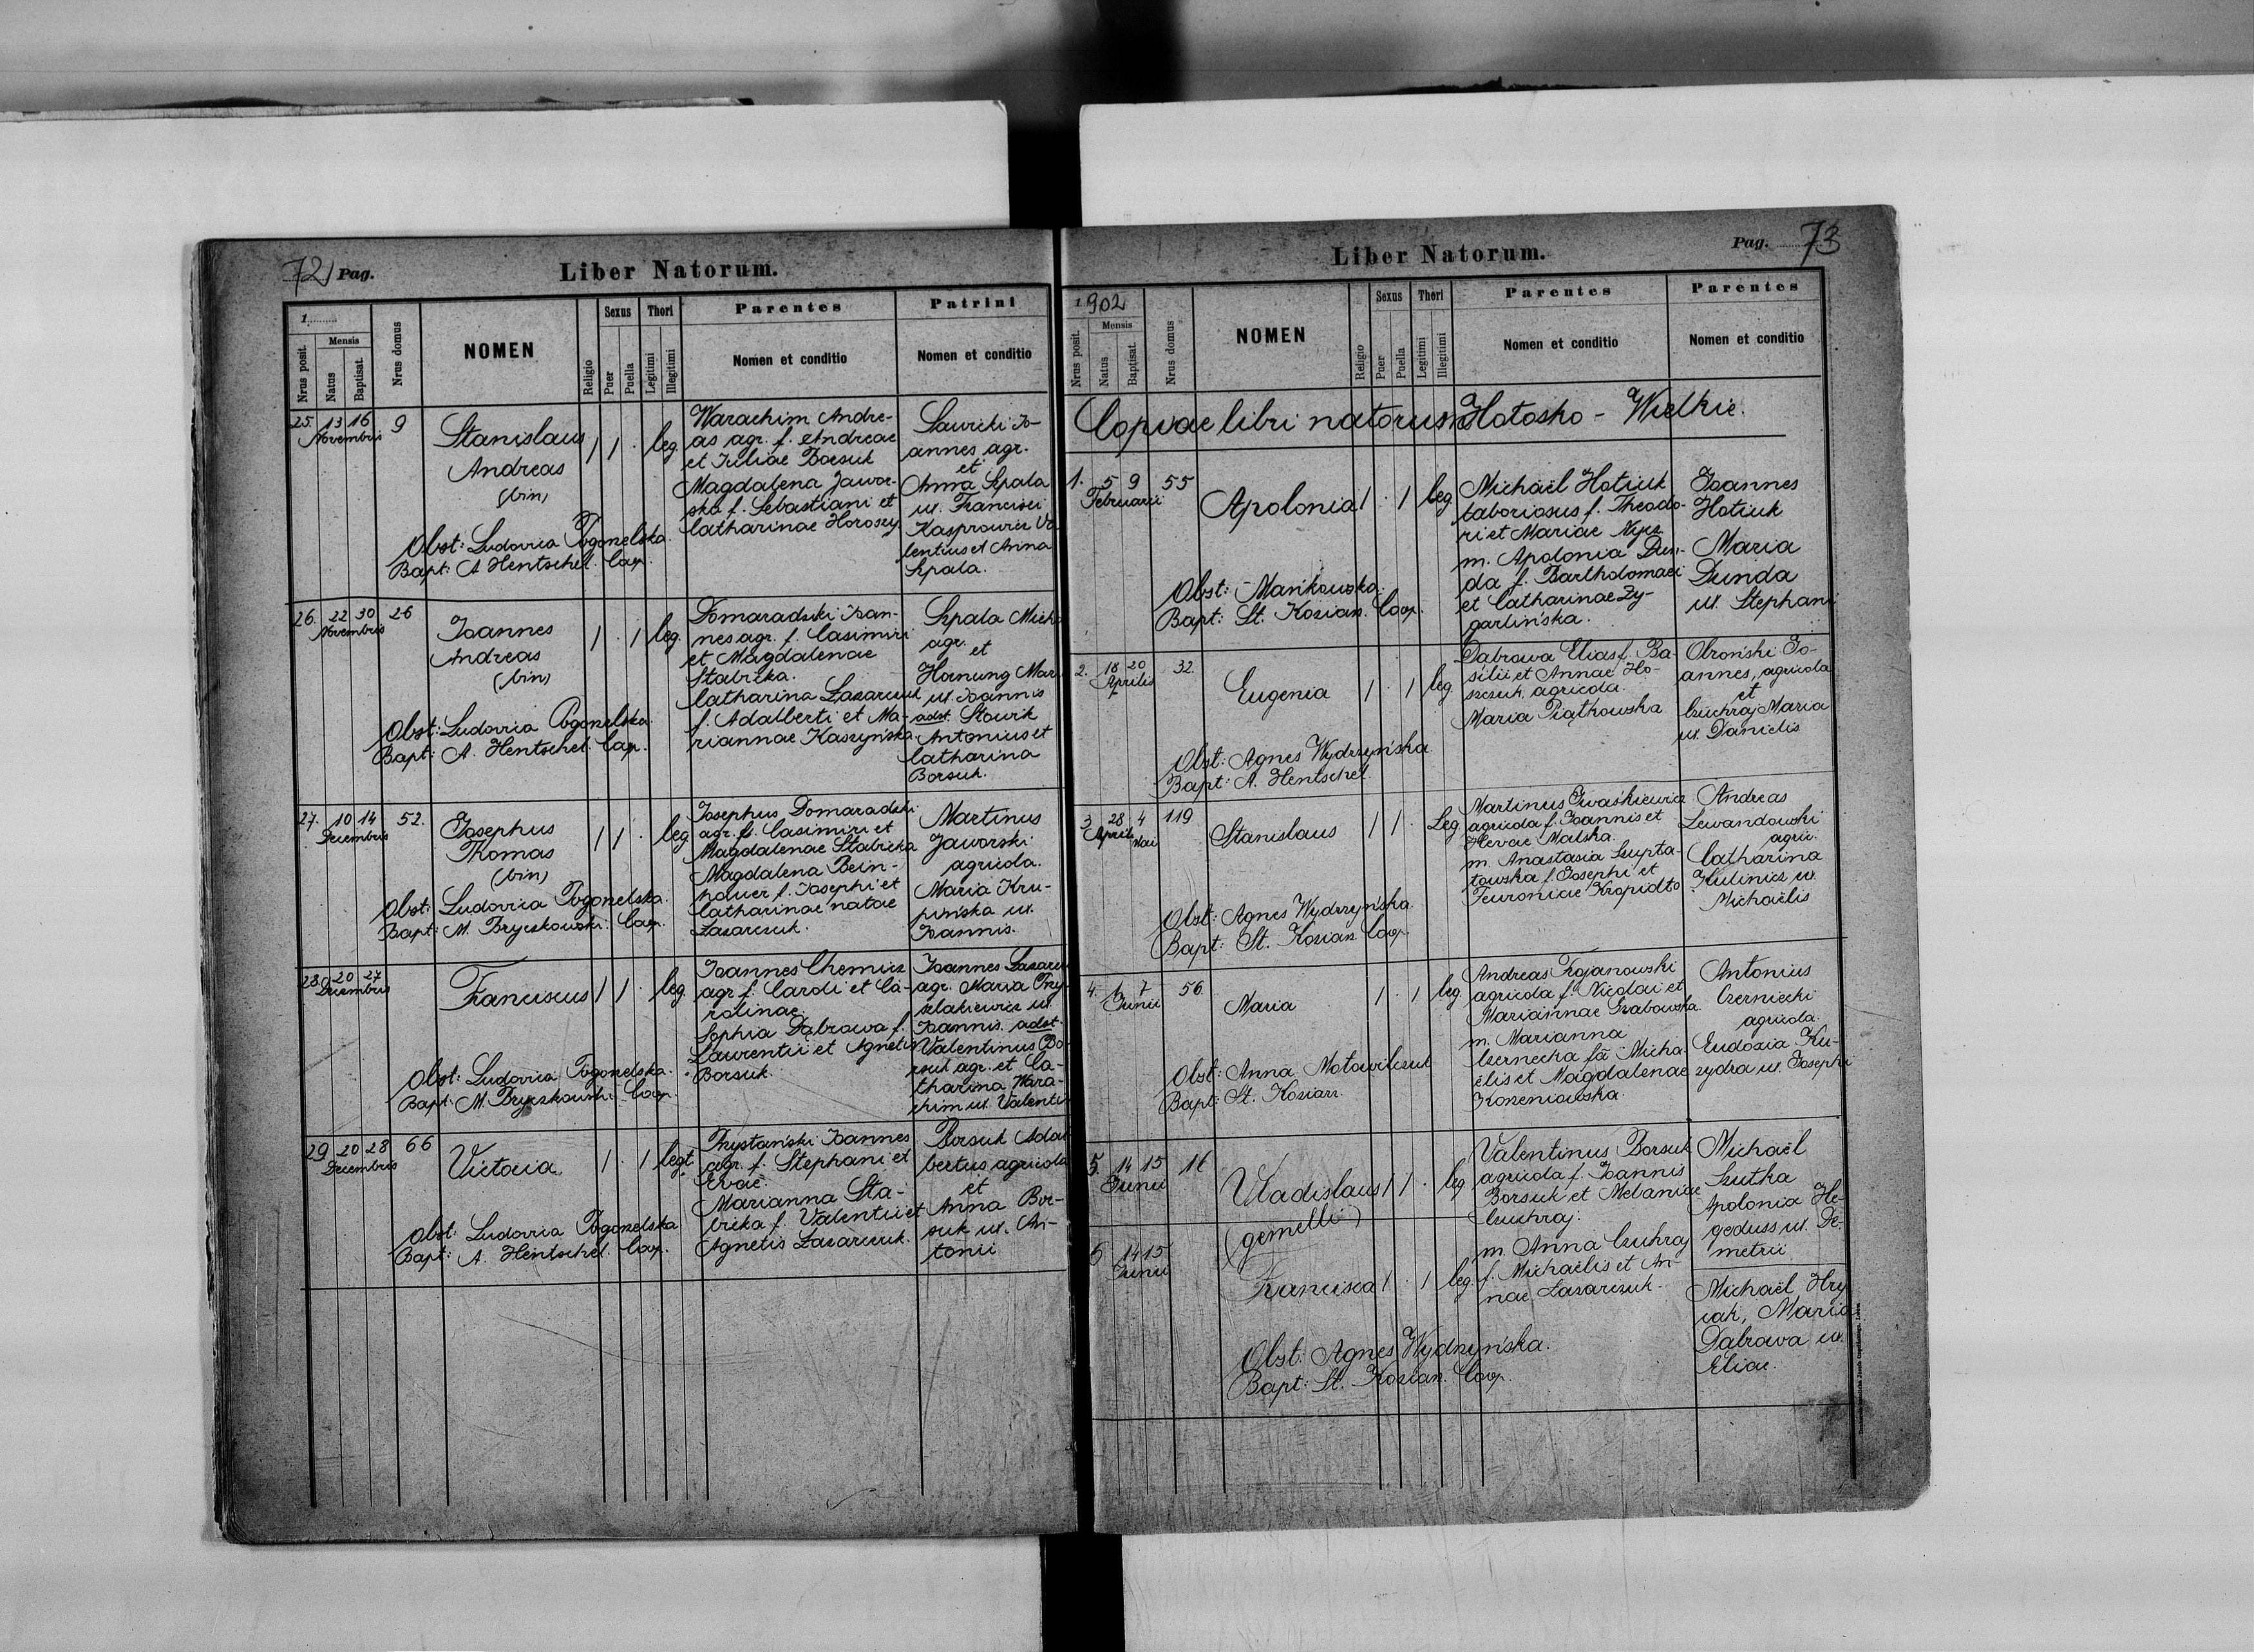 72) Pag.
Liber Natorum.
1
Nrus posit.
Mensis
Natus
Baptisat.
Nrus domus
NOMEN
Religio
Sexus
Puer
Puella
Thori
Legitimi
Illegitimi
Parentes
Nomen et conditio
Patrini
Nomen et conditio
25. 13 16 9
Novembris
Stanislaus
Andreas
(bin)
1 1 . leg.
Obst: Ludovica Pogonelska.
Bapt: A Hentschel. Coop.
Warachim Andre-
as agr. f. Andreae
et Juliae Borsuk
Magdalena Jawor-
ska f. Sebastiani et
Catharinae Horoszy
Sawicki Jo-
annes agr.
et
Anna Szpala
ux. Francisci
Kasprowicz Va
lentius et Anna
Szpala.
26. 22 30 26
Novembris
Joannes
Andreas
(bin)
1 . 1 leg.
Obst: Ludovica Pogonelska.
Bapt: A. Hentschel. Coop.
Domaradzki Joan-
nes agr. f. Casimiri
et Magdalenae
Stabicka.
Catharina Lazarczuk
f. Adalberti et Ma-
riannae Kaszyńska
Szpala Mich
agr.
et
Hornung Mar
ux. Joannis
adst. Stowik
Antonius et
Catharina
Borsuk.
27. 10 14 52.
Decembris
Josephus
Thomas
(bin)
1 1 . leg
Obst: Ludovica Pogonelska.
Bapt: M. Bryczkowski. Coop.
Josephus Domaradzki
agr. f. Casimiri et
Magdalenae Stabicka
Magdalena Bein-
hauer f. Josephi et
Catharinae natae
Lazarczuk.
Martinus
Jaworski
agricola.
Maria Kru-
pińska ux.
Joannis.
28. 20 27
Decembris
Franciscus 1 1 . leg.
Obst: Ludovica Pogonelska.
Bapt: M. Bryczkowski Coop.
Joannes Chemicz
agr. f. Caroli et Ca-
rolinae
Sophia Dąbrowa f.
Laurentii et Agnetis
Borsuk.
Joannes Lazarcz
agr. Maria Przy-
szlakiewicz ux.
Joannis. adst.
Valentinus Bo-
rsuk agr. et Ca-
tharina Wara-
chim ux. Valenti
29 20 28 66
Decembris
Victoria 1 . 1 legt.
Obst: Ludovica Pogonelska
Bapt: A. Hentschel. Coop.
Przystański Joannes
agr. f. Stephani et
Evae.
Marianna Sta-
bicka f. Valentii et
Agnetis Lazarczuk.
Borsuk Adal
bertus agricola
et
Anna Bor-
suk ux. An-
tonii
Liber Natorum.
Pag. 73
1902
Nrus posit.
Mensis
Natus
Baptisat.
Nrus domus
NOMEN
Religio
Sexus
Puer
Puella
Thori
Legitimi
Illegitimi
Parentes
Nomen et conditio
Parentes
Nomen et conditio
Copiae libri natorum Hotosko - Wielkie.
1. 5 9 55
Februarii
Apolonia 1 . 1 leg
Obst: Mańkowska.
Bapt: St. Kosiarz. Coop.
Michaël Hotiuk
laboriosus f. Theodo-
ri et Mariae Nycz
m. Apolonia Dun-
da f. Bartholomaei
et Catharinae Zy-
garlińska.
Joannes
Hotiuk
Maria
Dunda
ux. Stephani
2. 18 20 32.
Aprilis
Eugenia 1 . 1 leg.
Obst: Agnes Wydrzyńska.
Bapt: A. Hentschel.
Dąbrowa Elias f. Ba-
silii et Annae Ho-
szczuk. agricola.
Maria Piątkowska
Obroński Jo-
annes, agricola
et
Czuchraj Maria
ux. Danielis
3. 28 4 119
Aprilis Mai
Stanislaus 1 1 . Leg
Obst: Agnes Wydrzyńska.
Bapt: St. Kosiarz. Coop.
Martinus Iwaśkiewicz
agricola f. Joannis et
Hevae Malska.
m. Anastasia Szupta-
towska f. Josephi et
Feuroniae Kropidło
Andreas
Lewandowski
agric.
Catharina
Kulinicz ux.
Michaëlis
4. 1 7 56.
Junii
Maria 1 . 1 leg.
Obst: Anna Motowilczuk
Bapt: St. Kosiarz.
Andreas Trojanowski
agricola f. Nicolai et
Mariannae Grabowska.
m. Marianna
Czernecka fa Micha-
ëlis et Magdalenae
Korzeniowska.
Antonius
Czerniecki
agricola.
Eudoxia Ku-
szydra ux. Josephi
5 14 15 16
Junii
Vladislaus 1 1 . leg
(gemelli)
6 14 15
Junii
Francisca 1 . 1 leg.
Obst: Agnes Wydrzyńska.
Bapt: St. Kosiarz. Coop.
Valentinus Borsuk
agricola f. Joannis
Borsuk et Melaniae
Czuchraj.
m. Anna Czuhraj
f. Michaëlis et An-
nae Lazarczuk.
Michaël
Szutka
Apolonia He-
geduss ux. De-
metrii
Michaël Hry
ciak, Maria
Dąbrowa ux.
Eliae.